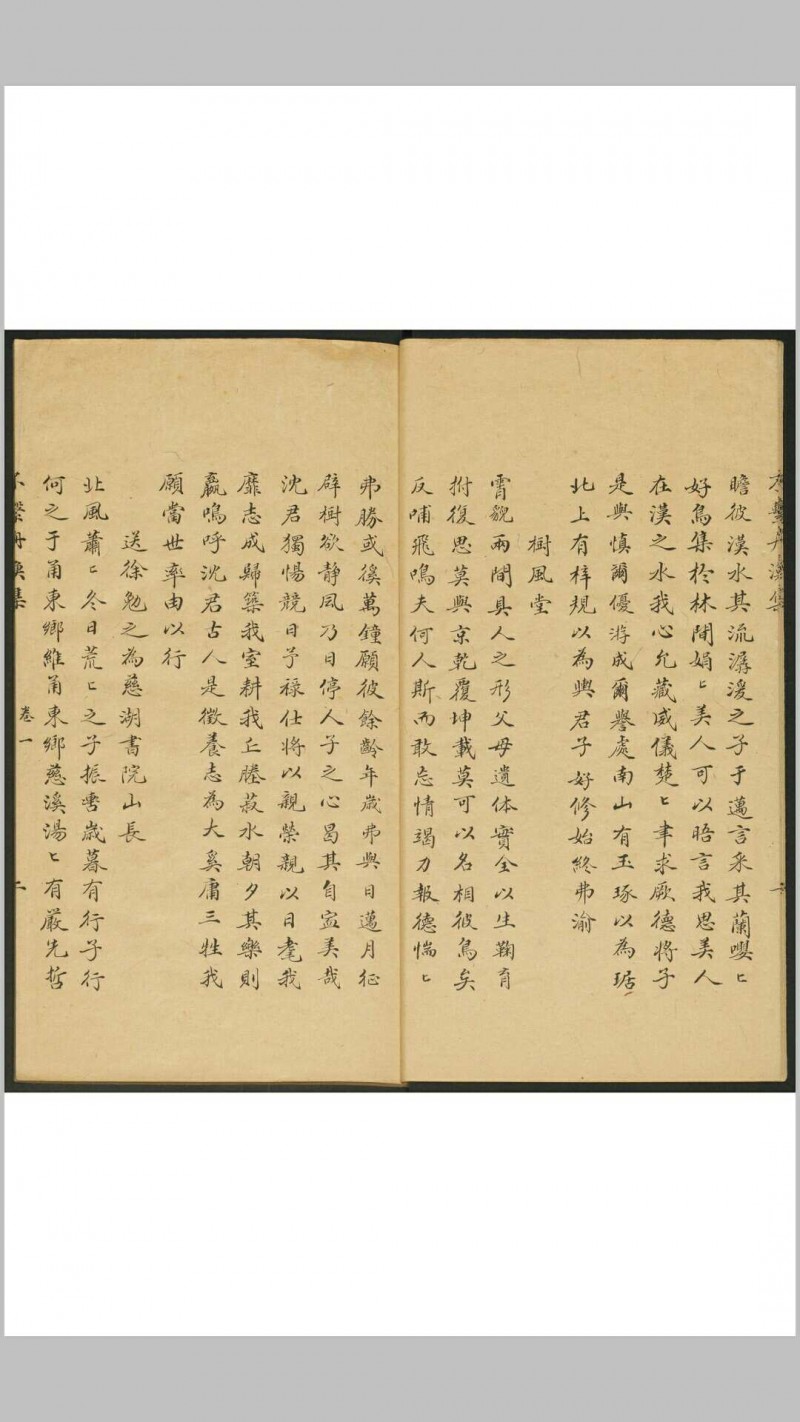 瞻彼漢水其流潺湲之子于邁言采其蘭嚶〻
好鳥集於林間娟〻美人可以晤言我思美人
在漢之水我心允藏威儀楚〻聿求厥德將子
是與慎爾優游成爾譽處南山有玉琢以為琚
北上有梓規以為輿君子好修始終弗渝
樹風堂
霄貌兩間具人之形父母遺体實全以生鞠育
拊復思莫與京乾覆坤載莫可以名相彼鳥矣
反哺飛鳴夫何人斯而敢忘情竭力報德惴〻
弗勝或徯萬鐘願彼餘齡年歲弗與日邁月征
辟樹欲靜風乃日停人子之心曷其自寍美哉
沈君獨惕競日予祿仕將以親榮親以日耄我
靡志成歸築我室耕我丘塍菽水朝夕其樂則
贏嗚呼沈君古人是徵養志為大奚庸三牲我
願當世率由以行
送徐勉之為慈湖書院山長
北風蕭〻冬日荒〻之子振轡歲暮有行子行
何之于甬東鄉維甬東鄉慈溪湯〻有嚴先哲
不繫舟漁集
卷一
二